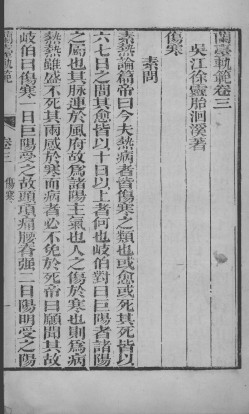 蘭臺軌範卷三
吳江徐靈胎洄溪著
傷寒
素問
素熱論篇帝曰今夫熱病者皆傷寒之類也或愈或死其死皆以
六七日之間其愈皆以十日以上者何也岐伯對曰巨陽者諸陽
之屬也其脉連於風府故爲諸陽主氣也人之傷於寒也則爲病
熱熱雖盛不死其兩感於寒而病者必不免於死帝曰願聞其故
岐伯曰傷寒一日巨陽受之故頭項痛腰脊强二日陽明受之陽
蘭臺軌範 卷三 傷寒